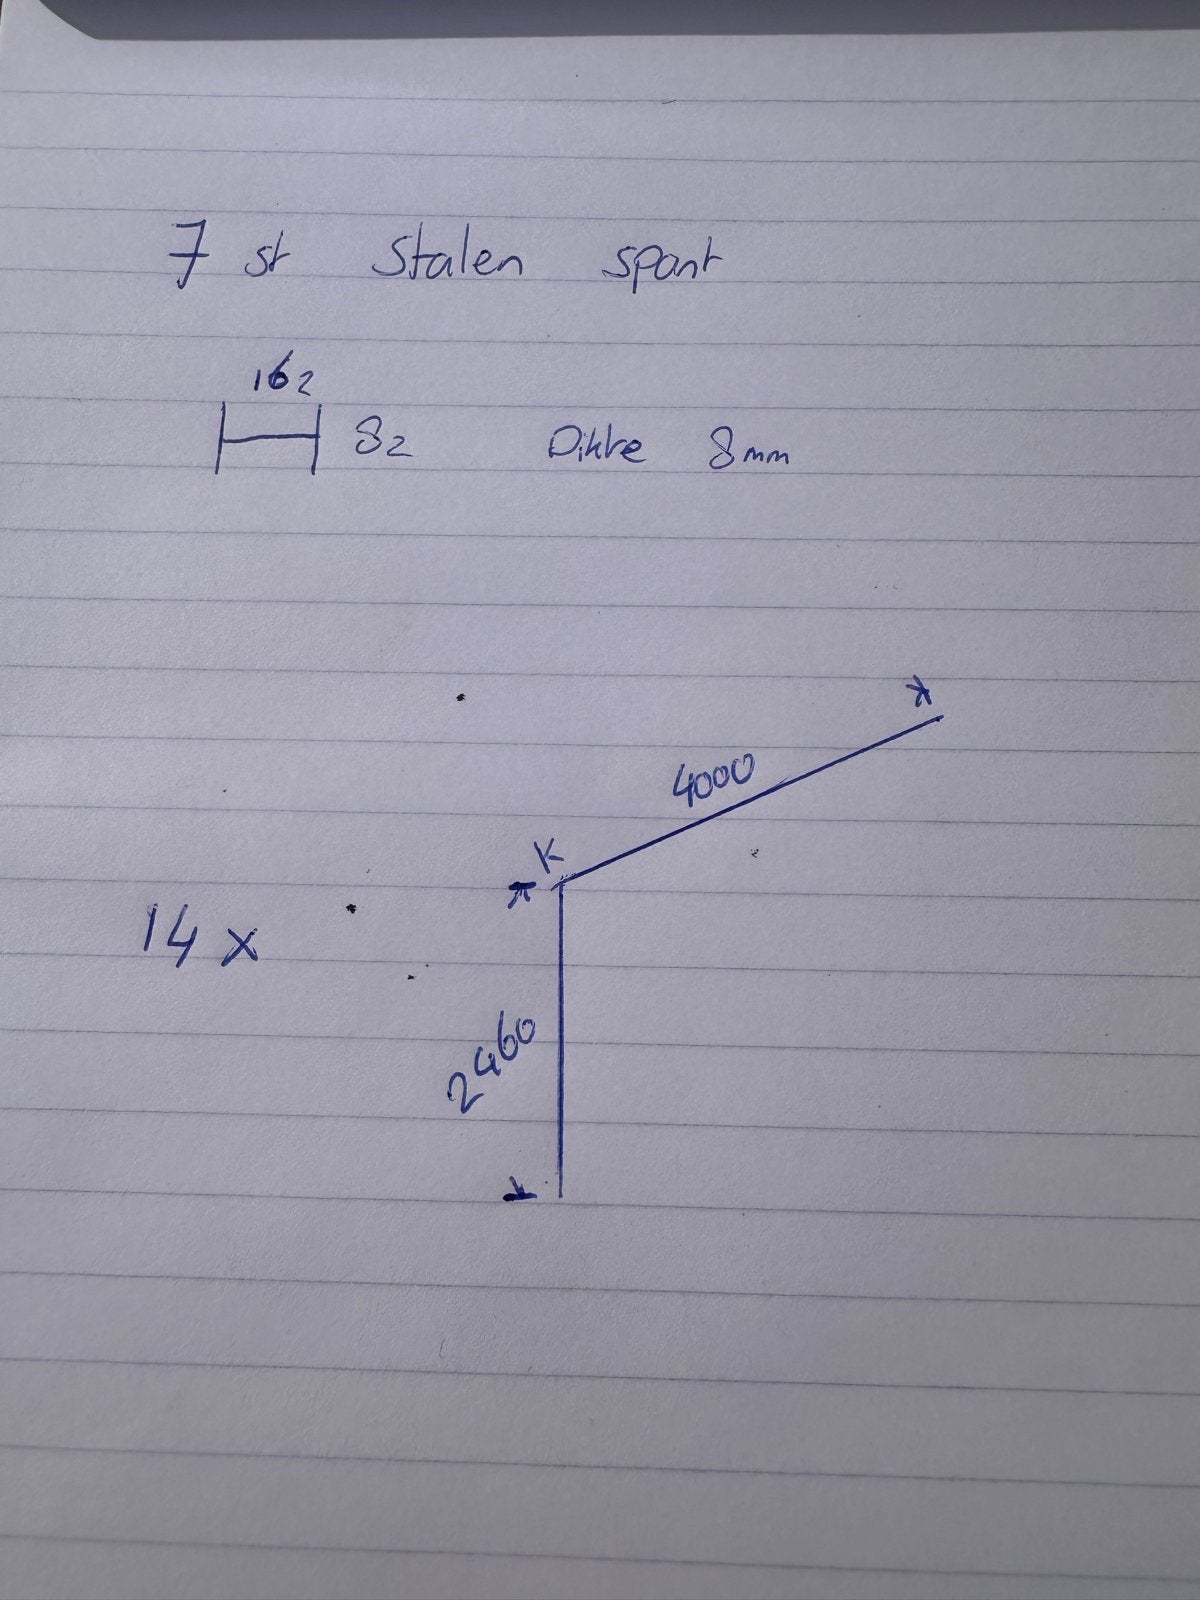 7 st stalen spant
162
82 Dikte 8mm
4000
K
14 x
2460